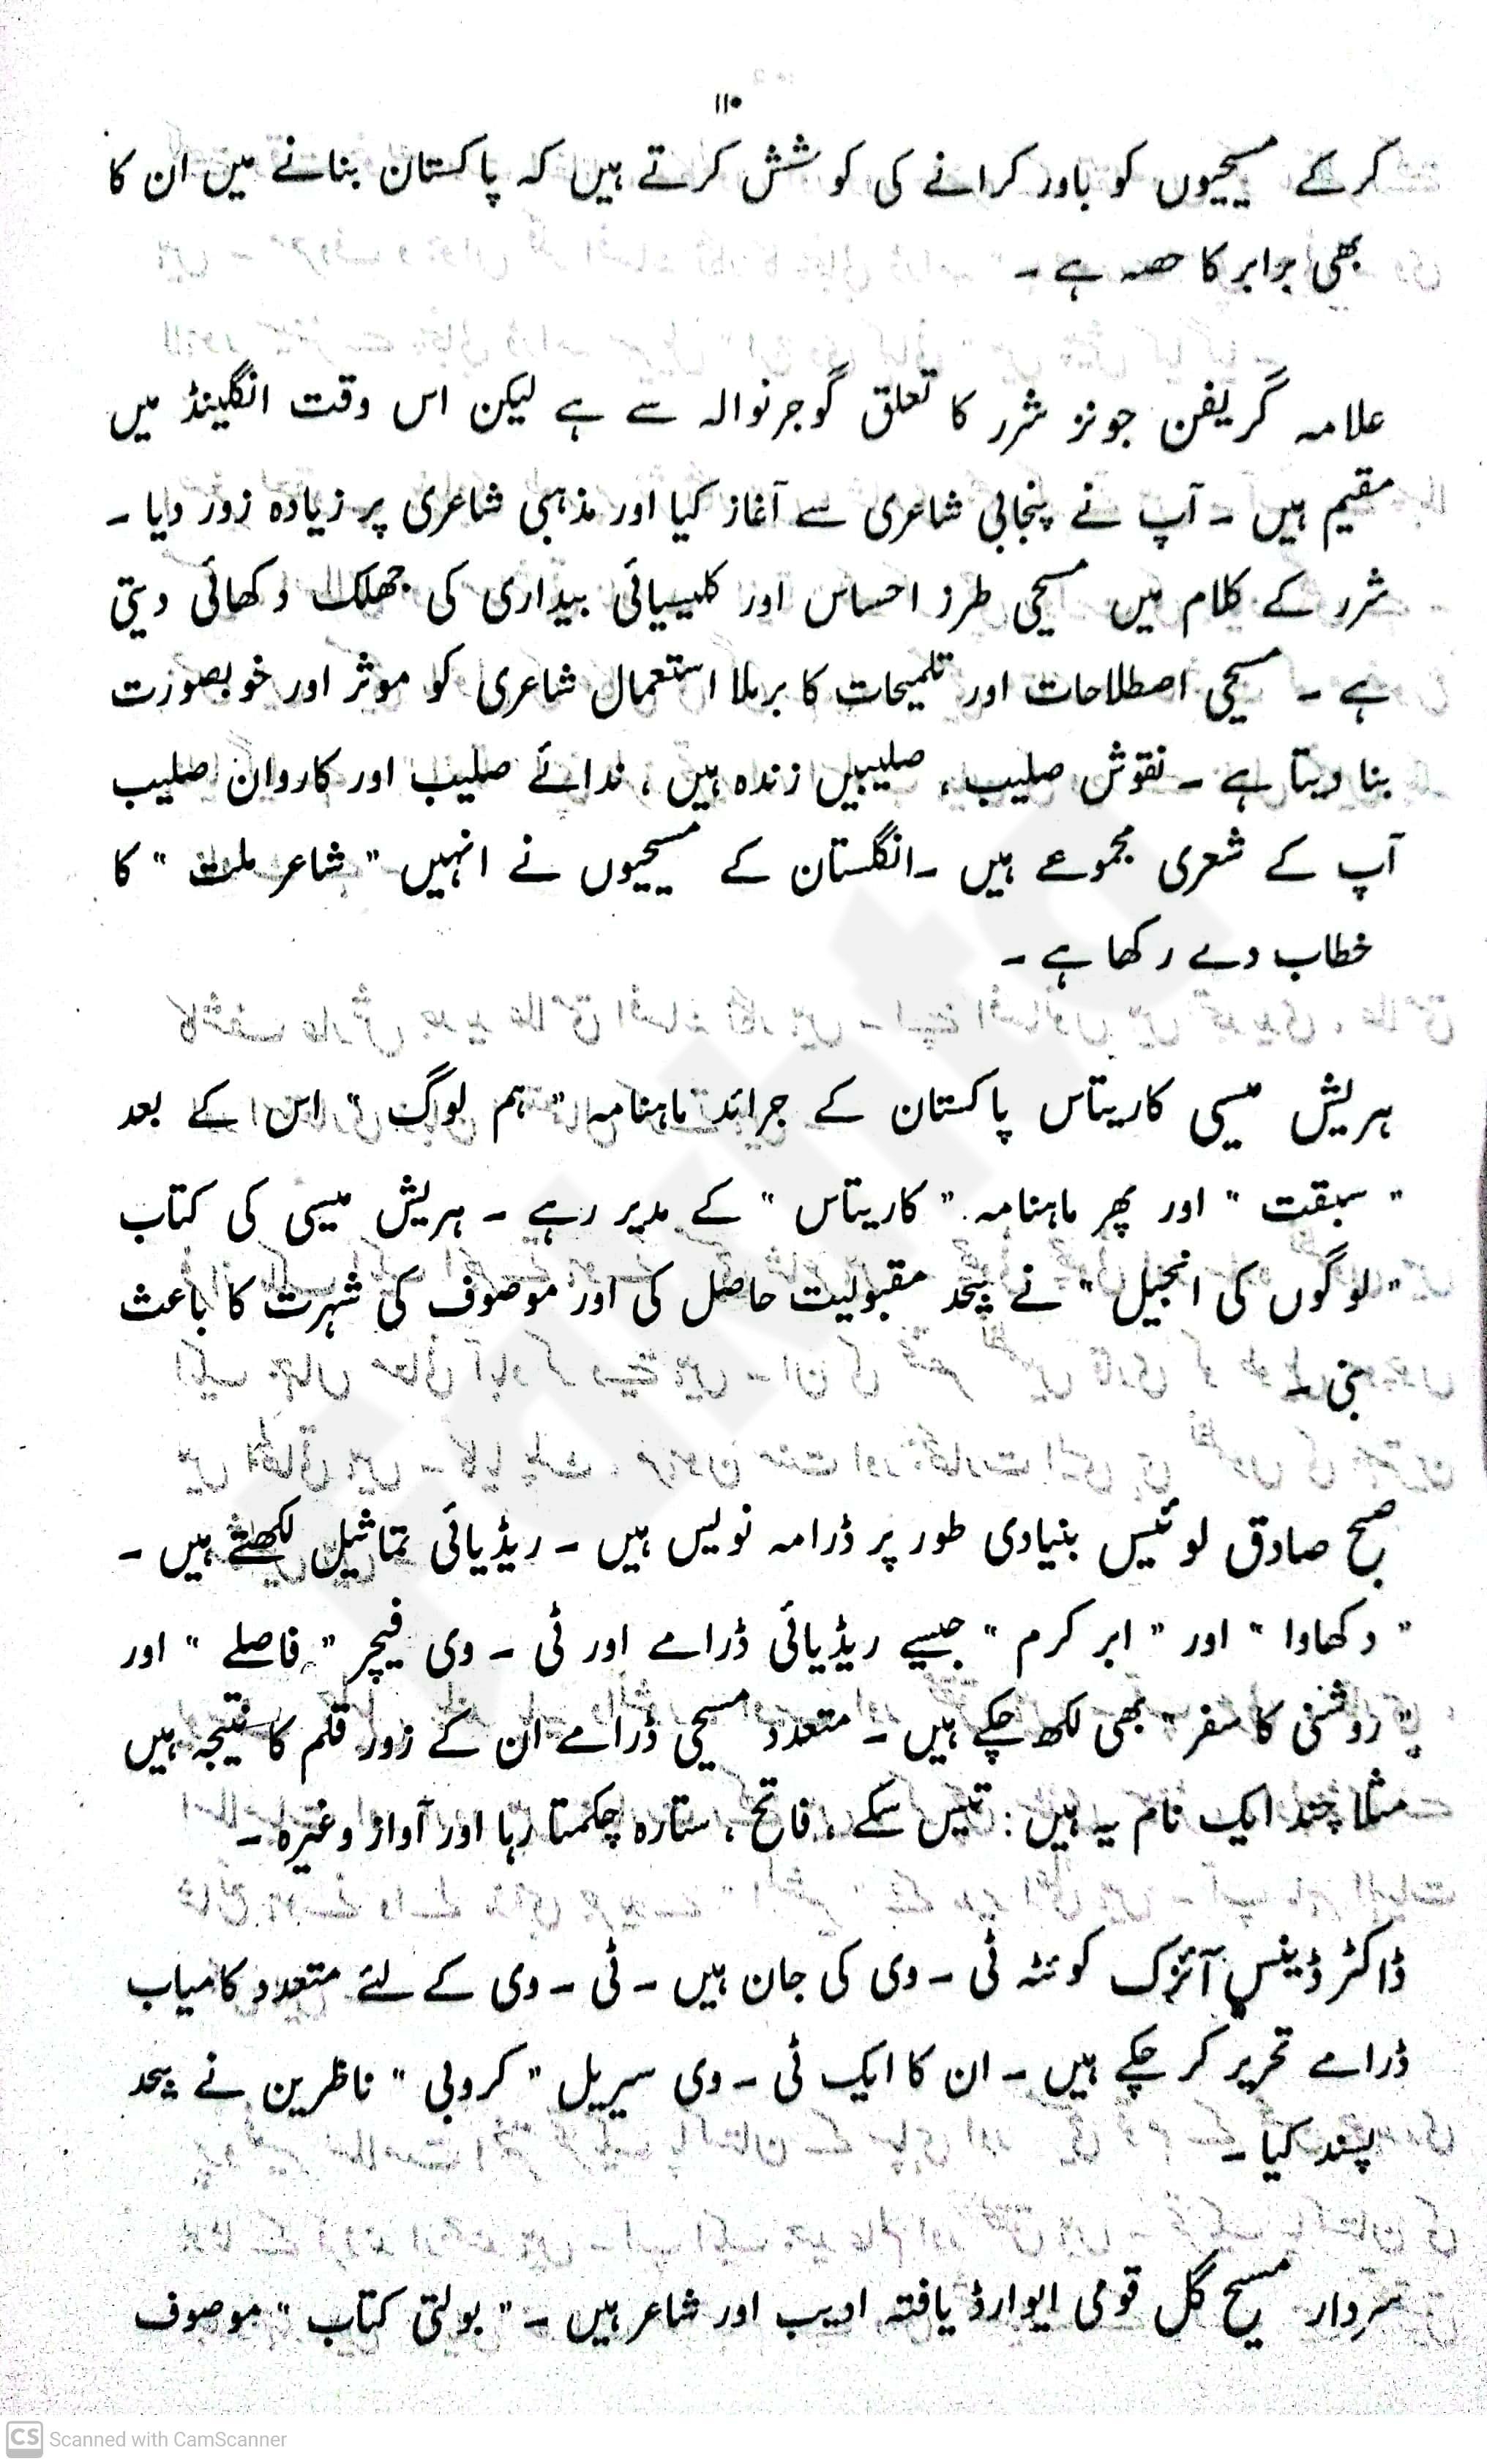 ۱۱۰
کر کے مسیحیوں کو باور کرانے کی کوشش کرتے ہیں کہ پاکستان بنانے میں ان کا
بھی برابر کا حصہ ہے ۔
علامہ گریفن جونز شرر کا تعلق گوجرنوالہ سے ہے لیکن اس وقت انگلینڈ میں
مقیم ہیں ۔ آپ نے پنجابی شاعری سے آغاز کیا اور مذہبی شاعری پر زیادہ زور دیا ۔
شرر کے کلام میں مسیحی طرز احساس اور کلیسیائی بیداری کی جھلک دکھائی دیتی
ہے ۔ مسیحی اصطلاحات اور تلمیحات کا برملا استعمال شاعری کو موثر اور خوبصورت
بنا دیتا ہے ۔ نقوش صلیب ، صلیبیں زندہ ہیں ، ندائے صلیب اور کاروان صلیب
آپ کے شعری مجموعے ہیں ۔انگلستان کے مسیحیوں نے انہیں " شاعر ملت " کا
خطاب دے رکھا ہے ۔
ہریش میسی کاریتاس پاکستان کے جرائد ماہنامہ " ہم لوگ " اس کے بعد
" سبقت " اور پھر ماہنامہ " کاریتاس " کے مدیر رہے ۔ ہریش میسی کی کتاب
" لوگوں کی انجیل " نے بیحد مقبولیت حاصل کی اور موصوف کی شہرت کا باعث
بنی ۔
صبح صادق لوئیس بنیادی طور پر ڈرامہ نویس ہیں ۔ ریڈیائی تماثیل لکھتے ہیں ۔
" دکھاوا " اور " ابر کرم " جیسے ریڈیائی ڈرامے اور ٹی ۔ وی فیچر " فاصلے " اور
" روشنی کا سفر " بھی لکھ چکے ہیں ۔ متعدد مسیحی ڈرامے ان کے زور قلم کا نتیجہ ہیں
مثلا چند ایک نام یہ ہیں : تیس سکے ، فاتح ، ستارہ چمکتا رہا اور آواز وغیرہ ۔
ڈاکٹر ڈینس آئزک کوئٹہ ٹی ۔ وی کی جان ہیں ۔ ٹی ۔ وی کے لئے متعدد کامیاب
ڈرامے تحریر کر چکے ہیں ۔ ان کا ایک ٹی ۔ وی سیریل " کروبی " ناظرین نے بیحد
پسند کیا ۔
سردار مسیح گل قومی ایوارڈ یافتہ ادیب اور شاعر ہیں ۔ " بولتی کتاب " موصوف
CS Scanned with CamScanner